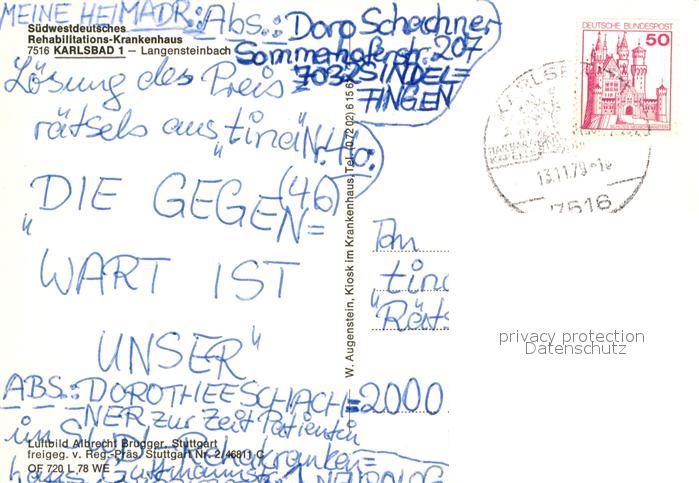 MEINE HEIMADR.: Abs.: Doro Schachner
Sommerhofenstr. 207
7032 SINDEL=
FINGEN
Südwestdeutsches
Rehabilitations-Krankenhaus
7516 KARLSBAD 1 – Langensteinbach
Lösung des Preis
rätsels aus "tina" Nr. 46:
(46)
"DIE GEGEN=
WART IST
UNSER"
ABS.: DOROTHEE SCHACH=
NER zur Zeit Patientin
im Südd. Rehakranken=
haus
Luftbild Albrecht Brugger, Stuttgart
freigeg. v. Reg.-Präs. Stuttgart Nr. 2/46811 C
OF 720 L 78 WE
W. Augenstein, Kiosk im Krankenhaus, Tel. (0 72 02) 6 15 6
DEUTSCHE BUNDESPOST
50
13.11.79
7516
tina
"Räts
2000
privacy protection
Datenschutz